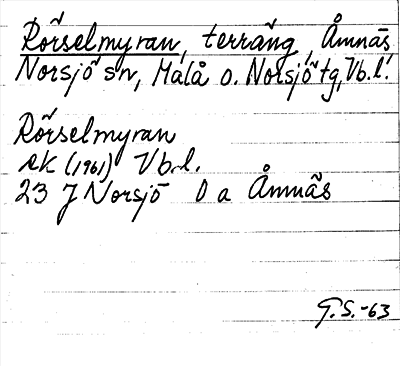 Rörselmyran, terräng, Åmnäs,
Norsjö sn, Malå o. Norsjö tg, Vb.l.
Rörselmyran
ek (1961) Vb.l.
23 J Norsjö 0 a Åmnäs
G.S.-63